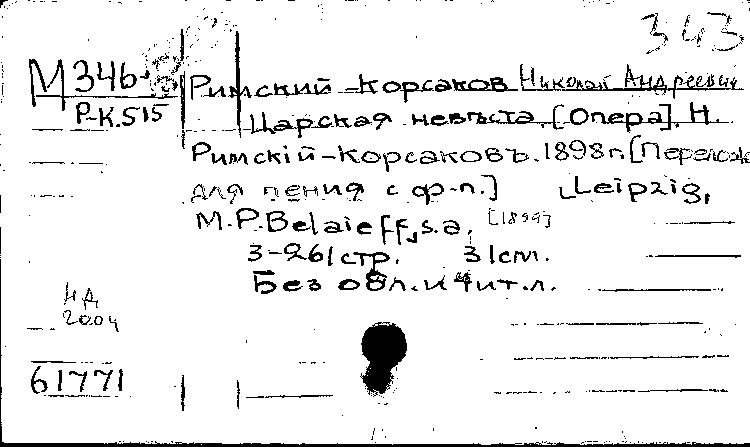 343
М346-8
Р-К.515
Римский-Корсаков Николай Андреевич
Царская невѣста. [Опера]. Н.
Римскій-Корсаковъ. 1898г. [Перелож
для пения с ф-п.] Leipzig,
M.P. Belaieff, s.a. [1899]
3-261 стр. 31см.
Без обл. и тит. л.
НД
2004
61771